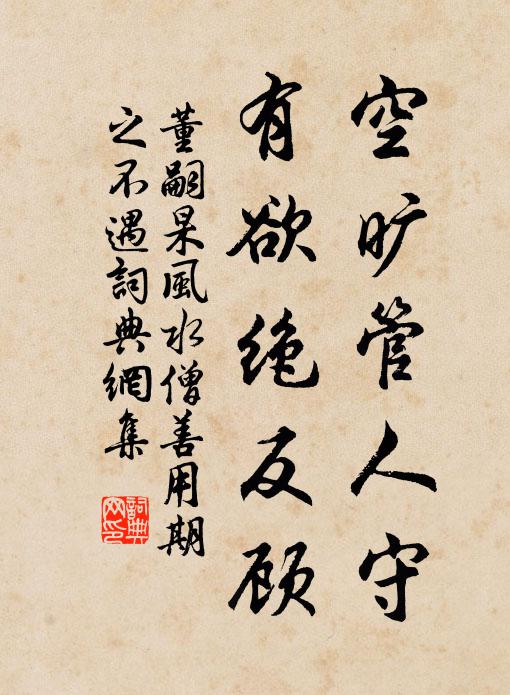 空旷管人守
有欲绝反顾
董嗣杲風水僧善用期
之不遇詞典網集
詞典网印